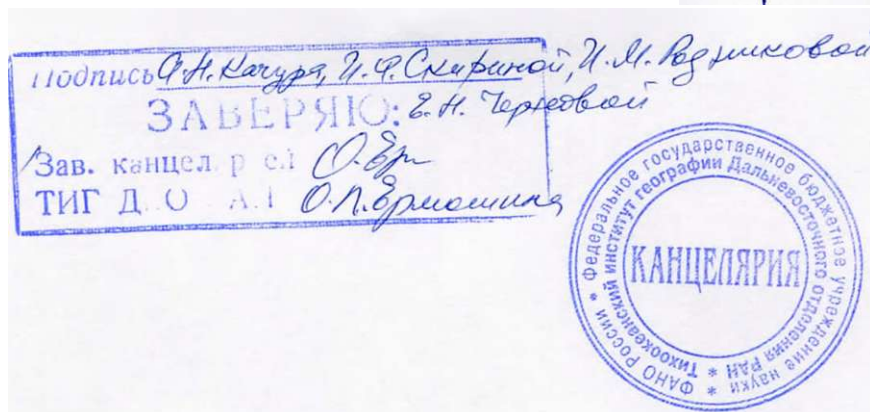 Подпись А.Н. Качура, И.Ф. Скириной, И.М. Родниковой
ЗАВЕРЯЮ: Е.Н. Черновой
Зав. канцел р ей О. Ерм
ТИГ Д О А О.П. Ермошина
ФАНО РОССИИ * Федеральное государственное бюджетное учреждение науки *
Тихоокеанский институт географии Дальневосточного отделения РАН *
КАНЦЕЛЯРИЯ